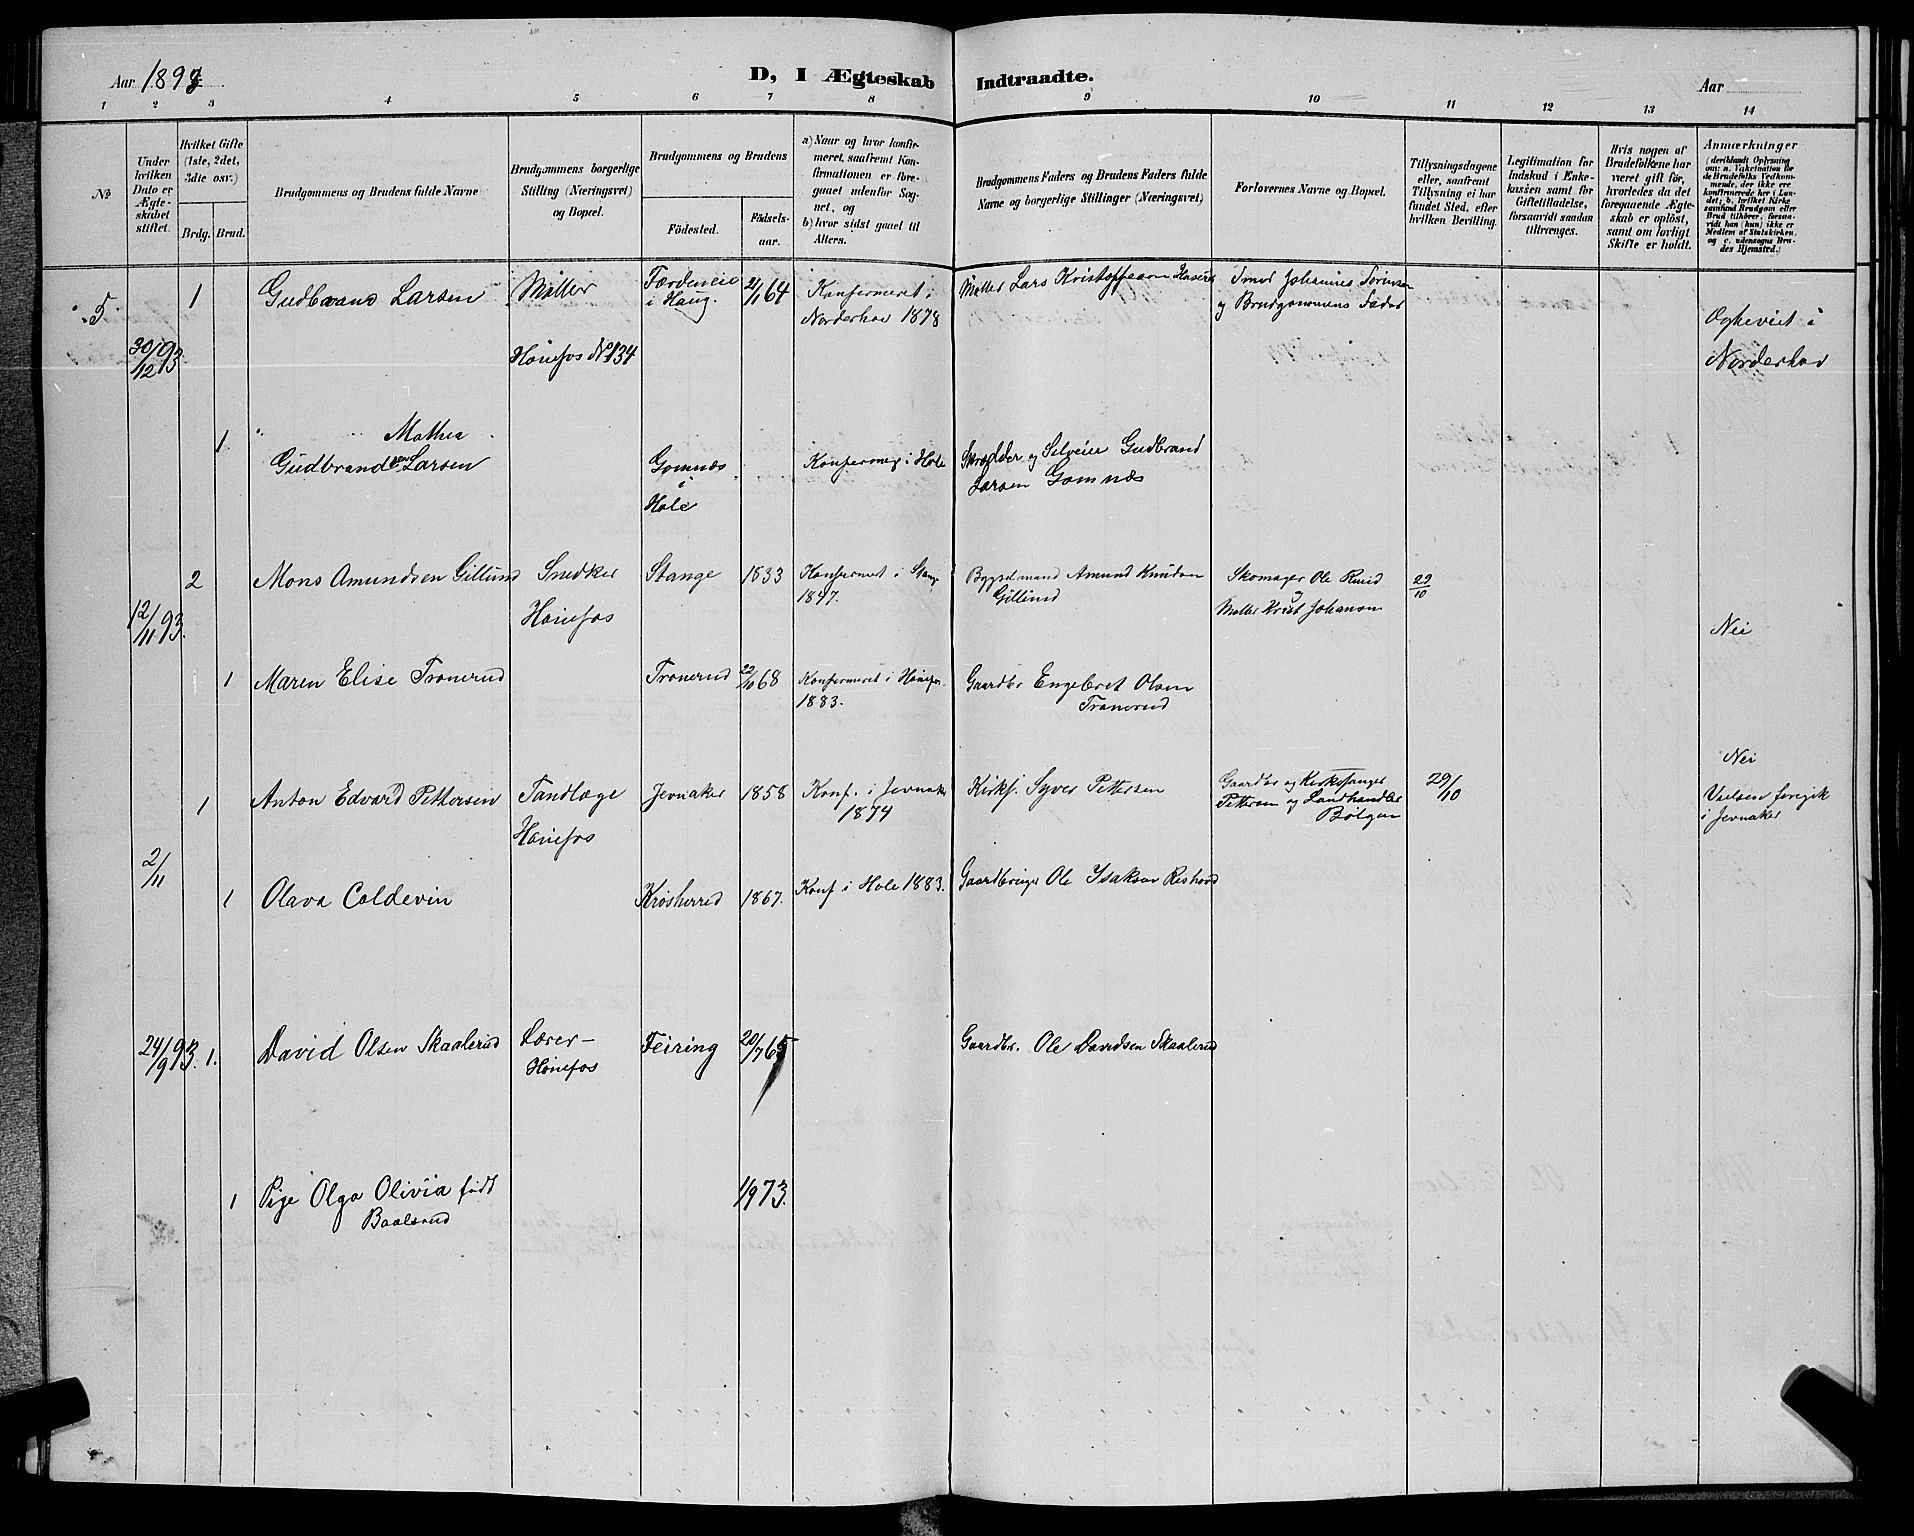 Aar 1893
D, I Ægteskab Indtraadte.
Aar
1 2 3 4 5 6 7 8 9 10 11 12 13 14
No
Under hvilken Dato er Ægteskabet stiftet.
Hvilket Gifte (1ste, 2det, 3die osv.)
Brdg. Brud.
Brudgommens og Brudens fulde Navne
Brudgommens borgerlige Stilling (Næringsvei) og Bopæl.
Brudgommens og Brudens
Födested.
Födselsaar.
a) Naar og hvor konfirmeret, saafremt Konfirmationen er foregaaet udenfor Sognet, og
b) hvor sidst gaaet til Alters.
Brudgommens Faders og Brudens Faders fulde Navne og borgerlige Stillinger (Næringsvei)
Forlovernes Navne og Bopæl.
Tillysningsdagene eller, saafremt Tillysning ei har fundet Sted, efter hvilken Bevilling.
Legitimation for Indskud i Enkekassen samt for Giftetilladelse, forsaavidt saadan tiltrænges.
Hvis nogen af Brudefolkene har været gift för, hvorledes da det foregaaende Ægteskab er oplöst, samt om lovligt Skifte er holdt.
Anmærkninger
(deriblandt Oplysning om: a. Vakcination for de Brudefolks Vedkommende, der ikke ere konfirmerede her i Landet; b. hvilket Kirkesamfund Brudgom eller Brud tilhörer, forsaavidt han (hun) ikke er Medlem af Statskirken, og c. udensogns Brudes Hjemsted.)
5
30/12 93
1
Gudbrand Larsen
Møller
Hønefos No 134
Færdeneie i Haug.
2/1 64
Konfermeret i Norderhov 1878
Møller Lars Kristoffersen
Smed Johannes Sørensen
og Brudgommens Fader
Ogsaa viet i
Norderhov
1
Mathea
Gudbrandsen Larsen
Gomnæs
i
Hole
Konfermeg i Hole
Skrædder og Selveier Gudbrand
Larsen Gomnæs
12/11 93.
2
Mons Amundsen Gillund
Snedker
Hønefos
Stange
1833
Konfermeret i Stange
1847.
Bygselmand Amund Knudsen
Gillund
Skomager Ole Ruud
og
Møller Krist Johansen
29/10
Nei
1
Maren Elise Tronerud
Tronerud
22/10 68
Konfermeret i Hønefos
1883.
Gaardbr Engebret Olsen
Tronerud
2/11
1
Anton Edvard Pettersen
Tandlæge
Hønefos
Jevnaker
1858
Konf. i Jevnaker
1874
Kirkes. Syver Pettersen
Gaardbr og Kirkesanger
Pettersen og Landhandler
Bölgen
29/10
Nei
Vielsen foregik
i Jevnaker
1
Olava Coldevin
Krösherred
1867.
Konf i Hole 1883.
Gaardbruger Ole Isaksen
24/9 93.
1.
David Olsen Skaalerud
Lærer-
Hönefos
Feiring
20/7 65
Gaardbr. Ole Davidsen Skaalerud
1
Pige Olga Olivia født
Baalsrud
1/9 73.